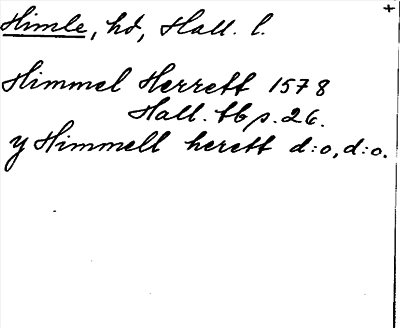 Himle, hd, Hall. l.
Himmel Herrett 1578
Hall. tb p. 26.
y Himmell herett d:o, d:o.